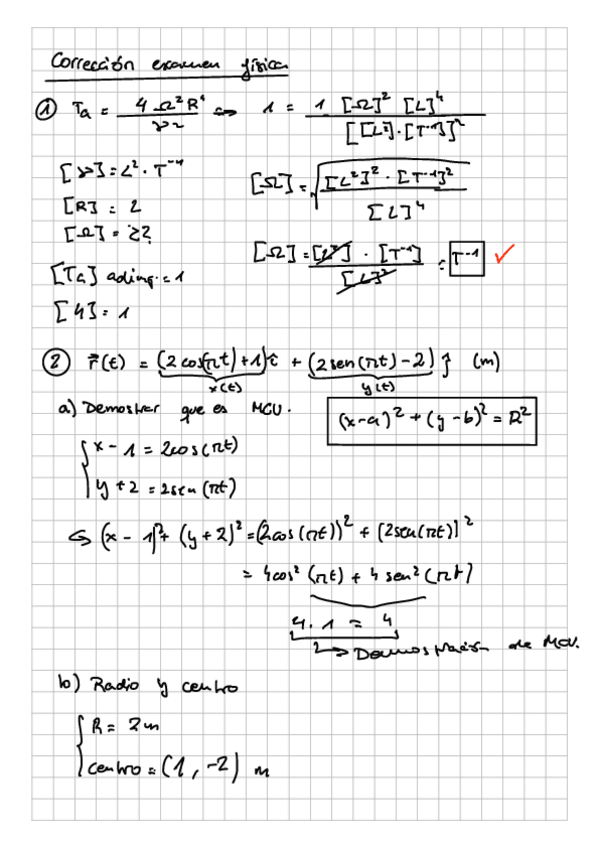 Corrección examen física
① Ta = 4 Ω² R⁴ / ν² ⇔ 1 = 1 [Ω]² [L]⁴ / [[L²]·[T⁻¹]]²
[ν] = L² · T⁻¹
[Ω] = √([L²]² · [T⁻¹]² / [L]⁴)
[R] = L
[Ω] = ¿?
[Ω] = [L²] · [T⁻¹] / [L]² = T⁻¹ ✓
[Ta] adim. = 1
[4] = 1
② r⃗(t) = (2cos(πt)+1)î + (2sen(πt)-2)ĵ (m)
x(t) y(t)
a) Demostrar que es MCU.
(x-a)² + (y-b)² = R²
x - 1 = 2cos(πt)
y + 2 = 2sen(πt)
↪ (x - 1)² + (y + 2)² = (2cos(πt))² + (2sen(πt))²
= 4cos²(πt) + 4sen²(πt)
4 · 1 = 4
↳ Demostración de MCU.
b) Radio y centro
R = 2m
centro = (1, -2) m